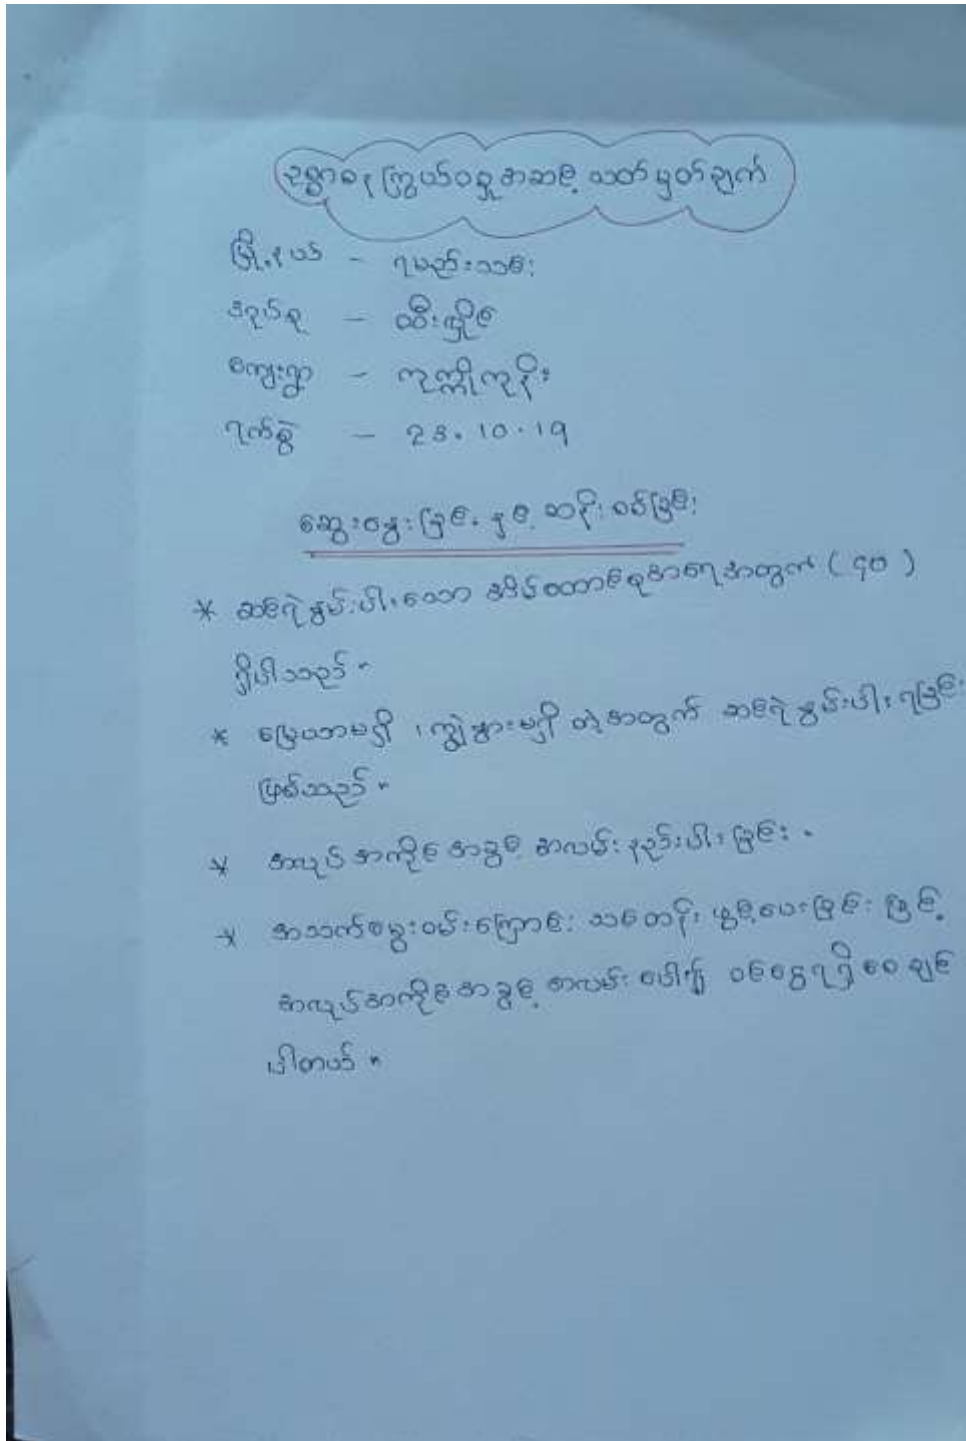 ဥစ္စာဓန ကြွယ်ဝမှုအဆင့် သတ်မှတ်ချက်
မြို့နယ် - ရမည်းသင်း
အုပ်စု - ထီးလှိုင်
ကျေးရွာ - ကုက္ကိုကုန်း
ရက်စွဲ - 23.10.19
ဆွေးနွေးခြင်း နှင့် ဆန်းစစ်ခြင်း
* ဆင်းရဲနွမ်းပါးသော အိမ်ထောင်စုအရေအတွက် (၄၀)
ရှိပါသည်။
* မြေယာမရှိ ၊ ကျွဲနွားမရှိ တဲ့အတွက် ဆင်းရဲနွမ်းပါးရခြင်း
ဖြစ်သည်။
* အလုပ်အကိုင်အခွင့် အလမ်းနည်းပါးခြင်း။
* အသက်မွေးဝမ်းကြောင်း သင်တန်းဖွင့်ပေးခြင်းဖြင့်
အလုပ်အကိုင်အခွင့်အလမ်းပေါ်၍ ဝင်ငွေရရှိစေချင်
ပါတယ်။